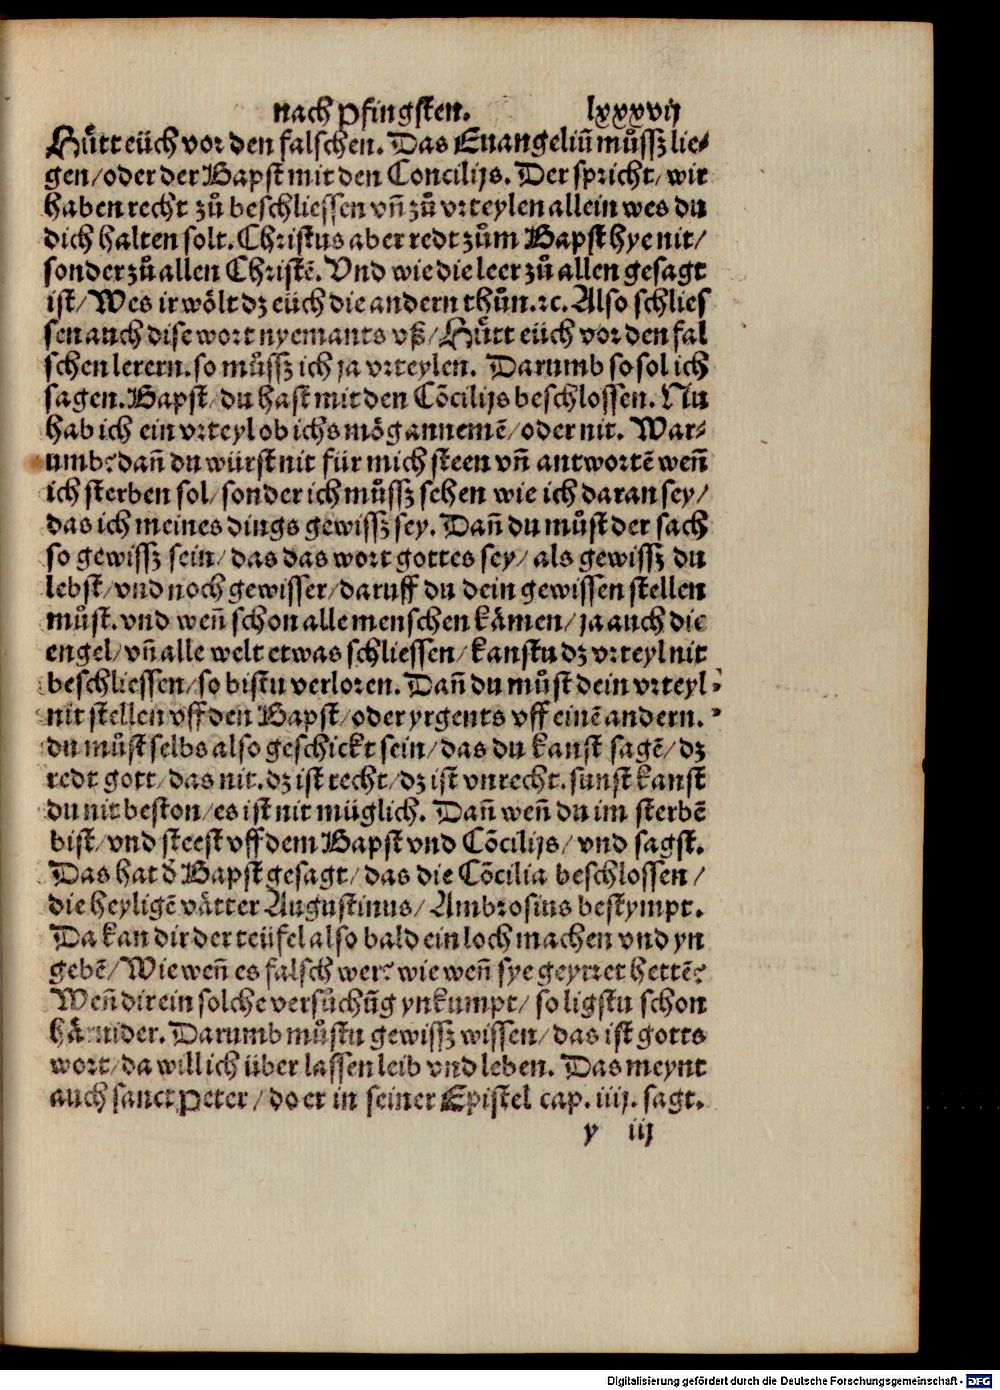 nach Pfingsten. lxxxvij
Hůtt eüch vor den falschen. Das Euangeliū můssz lie⸗
gen/oder der Bapst mit den Concilijs. Der spricht/ wir
haben recht zů beschliessen vn̄ zů vrteylen allein wes du
dich halten solt. Christus aber redt zům Bapst hye nit/
sonder zů allen Christē. Vnd wie die leer zů allen gesagt
ist/ Wes ir wölt dz eüch die andern thůn. ꝛc. Also schlies
sen auch dise wort nyemants vß/ Hůtt eüch vor den fal
schen lerern. so můssz ich ja vrteylen. Darumb so sol ich
sagen. Bapst/ du hast mit den Cōcilijs beschlossen. Nu
hab ich ein vrteyl ob ichs mög annemē/ oder nit. War⸗
umb? dan̄ du würst nit für mich steen vn̄ antwortē wen̄
ich sterben sol/ sonder ich můssz sehen wie ich daran sey/
das ich meines dings gewissz sey. Dan̄ du můst der sach
so gewissz sein/ das das wort gottes sey/ als gewissz du
lebst/ vnd noch gewisser/ daruff du dein gewissen stellen
můst. vnd wen̄ schon alle menschen kämen/ ja auch die
engel/ vn̄ alle welt etwas schliessen/ kanstu dz vrteyl nit
beschliessen/ so bistu verloren. Dan̄ du můst dein vrteyl
nit stellen vff den Bapst/ oder yrgents vff einē andern.
du můst selbs also geschickt sein/ das du kanst sagē/ dz
redt gott/ das nit. dz ist recht/ dz ist vnrecht. sunst kanst
du nit beston/ es ist nit müglich. Dan̄ wen̄ du im sterbē
bist/ vnd steest vff dem Bapst vnd Cōcilijs/ vnd sagst.
Das hat d̄ Bapst gesagt/ das die Cōcilia beschlossen/
die heyligē vätter Augustinus/ Ambrosius bestympt.
Da kan dir der teüfel also bald ein loch machen vnd yn
gebē/ Wie wen̄ es falsch wer? wie wen̄ sye geyrret hettē?
Wen̄ dir ein solche versůchūg ynkumpt/ so ligstu schon
härnider. Darumb můstu gewissz wissen/ das ist gotts
wort/ da will ich über lassen leib vnd leben. Das meynt
auch sanct Peter/ do er in seiner Epistel cap. iiij. sagt.
y iij
Digitalisierung gefördert durch die Deutsche Forschungsgemeinschaft - DFG